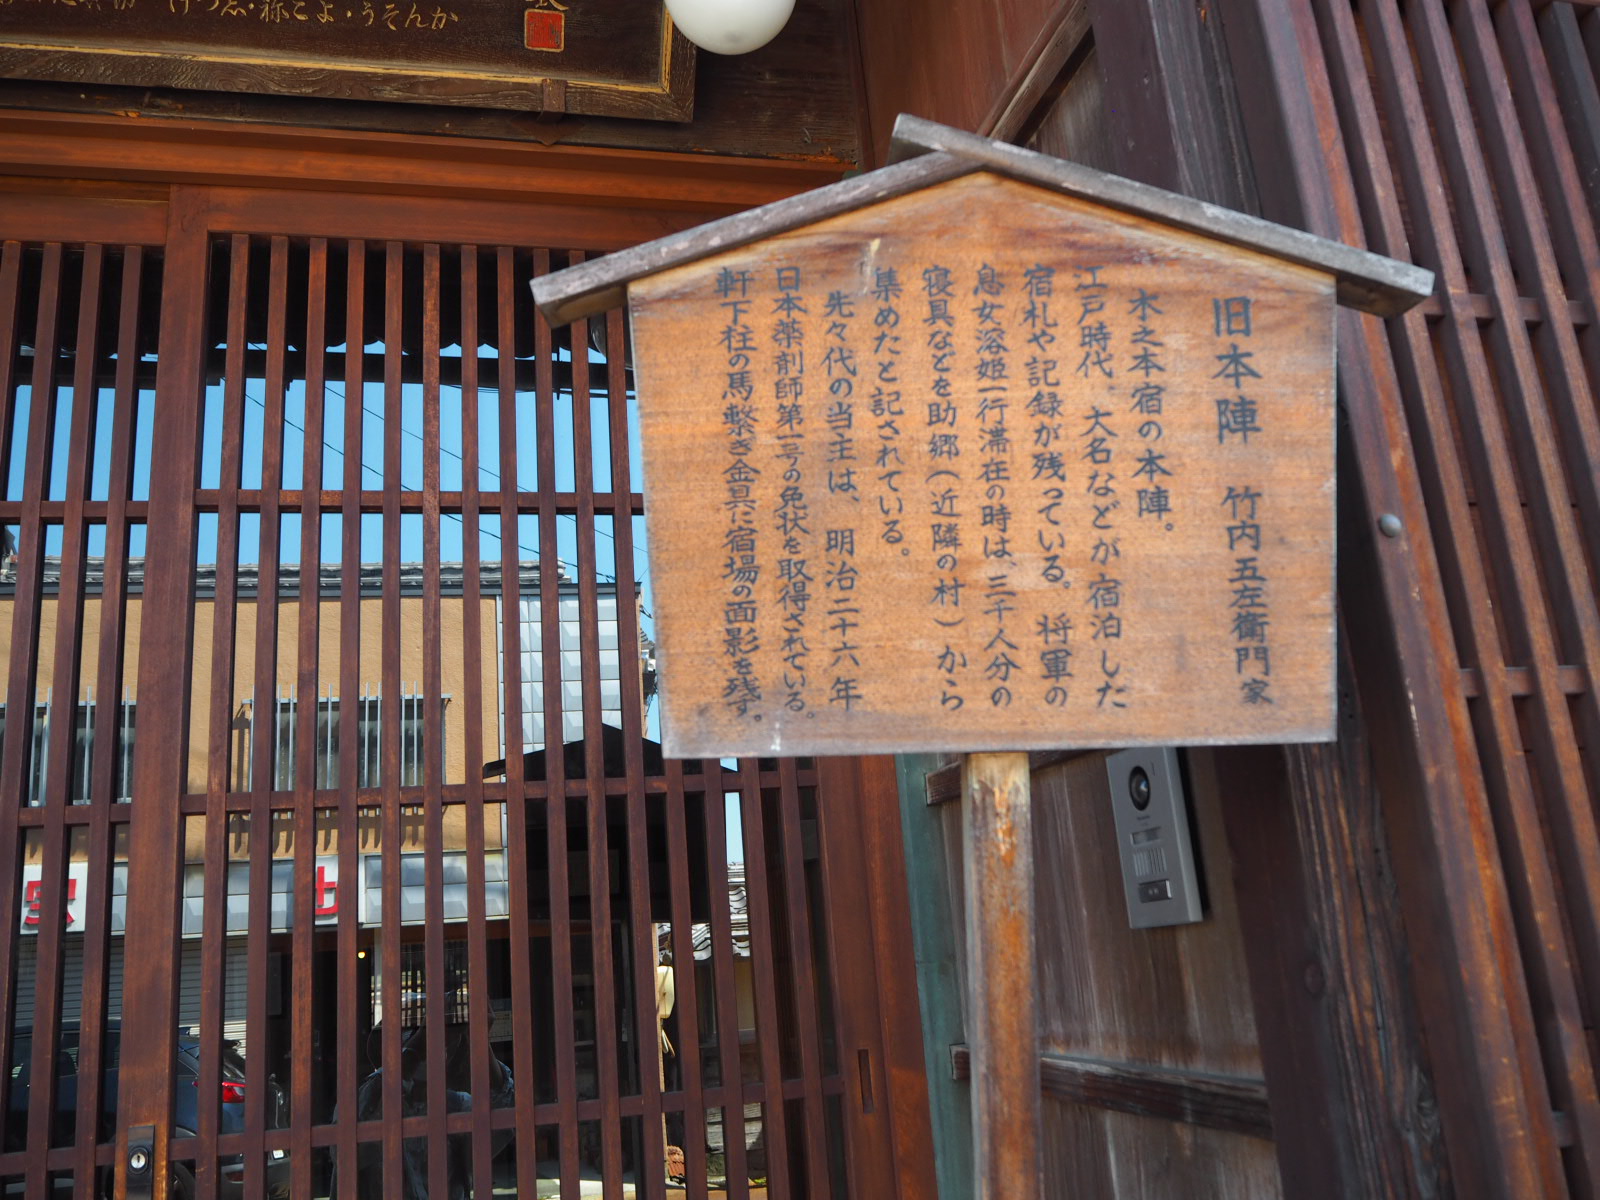 旧本陣　竹内五左衛門家
木之本宿の本陣。
江戸時代、大名などが宿泊した
宿札や記録が残っている。将軍の
息女溶姫一行滞在の時は、三千人分の
寝具などを助郷（近隣の村）から
集めたと記されている。
先々代の当主は、明治二十六年
日本薬剤師第一号の免状を取得されている。
軒下柱の馬繋ぎ金具に宿場の面影を残す。
かんそう